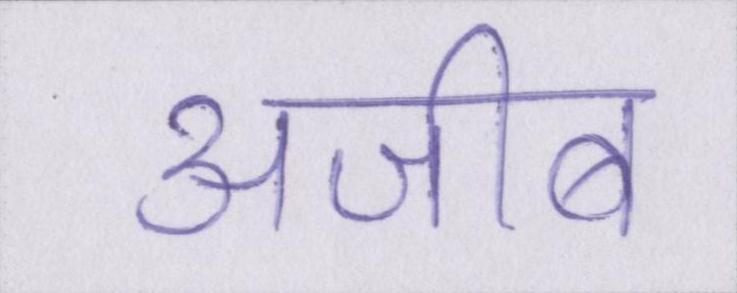 अजीब